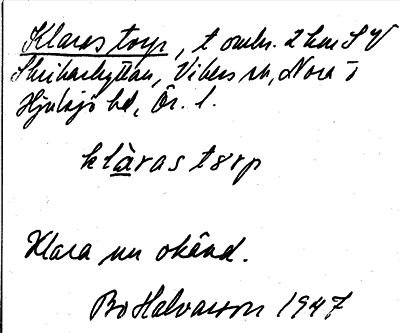 Klaras torp, t omkr. 2 km SV
Skrikarhyttan, Vikers sn, Nora o
Hjulsjö bd, Ör. l.
klàras torp
Klara nu okänd.
Bo Halvarson 1947